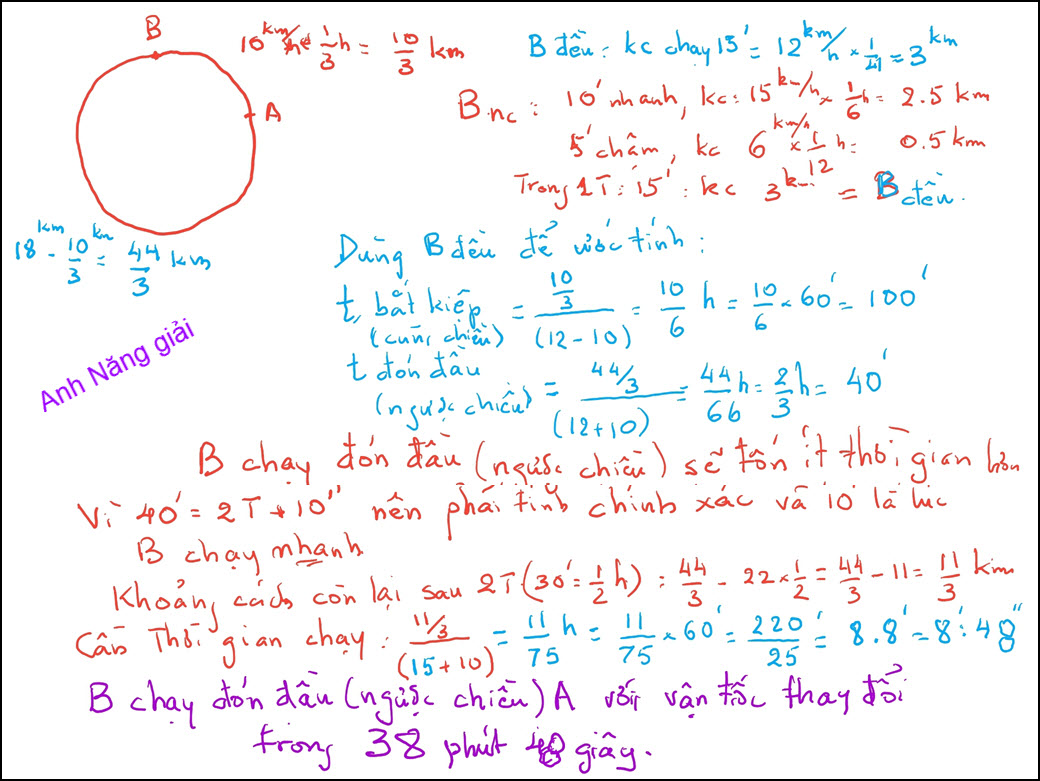 B
A
10 km/h × 1/3 h = 10/3 km
18 km - 10 km/3 = 44/3 km
Anh Năng giải
B đều: kc chạy 15' = 12 km/h × 1/4 = 3 km
B nc: 10' nhanh, kc: 15 k-/h × 1/6 h = 2.5 km
5' chậm, kc 6 km/h × 1/12 h = 0.5 km
Trong 1T: 15': kc 3 k- = B đều.
Dùng B đều để ước tính:
t, bắt kiệp = (10/3)/(12-10) = 10/6 h = 10/6 × 60' = 100'
(cùng chiều)
t đón đầu
(ngược chiều) = (44/3)/(12+10) = 44/66 h = 2/3 h = 40'
B chạy đón đầu (ngược chiều) sẽ tốn ít thời gian hơn
Vì 40' = 2T + 10'' nên phải tính chính xác và 10' là lúc
B chạy nhanh
Khoảng cách còn lại sau 2T (30' = 1/2 h): 44/3 - 22 × 1/2 = 44/3 - 11 = 11/3 km
Cần Thời gian chạy: (11/3)/(15+10) = 11/75 h = 11/75 × 60' = 220'/25 = 8.8' = 8':48''
B chạy đón đầu (ngược chiều) A với vận tốc thay đổi
trong 38 phút 48 giây.